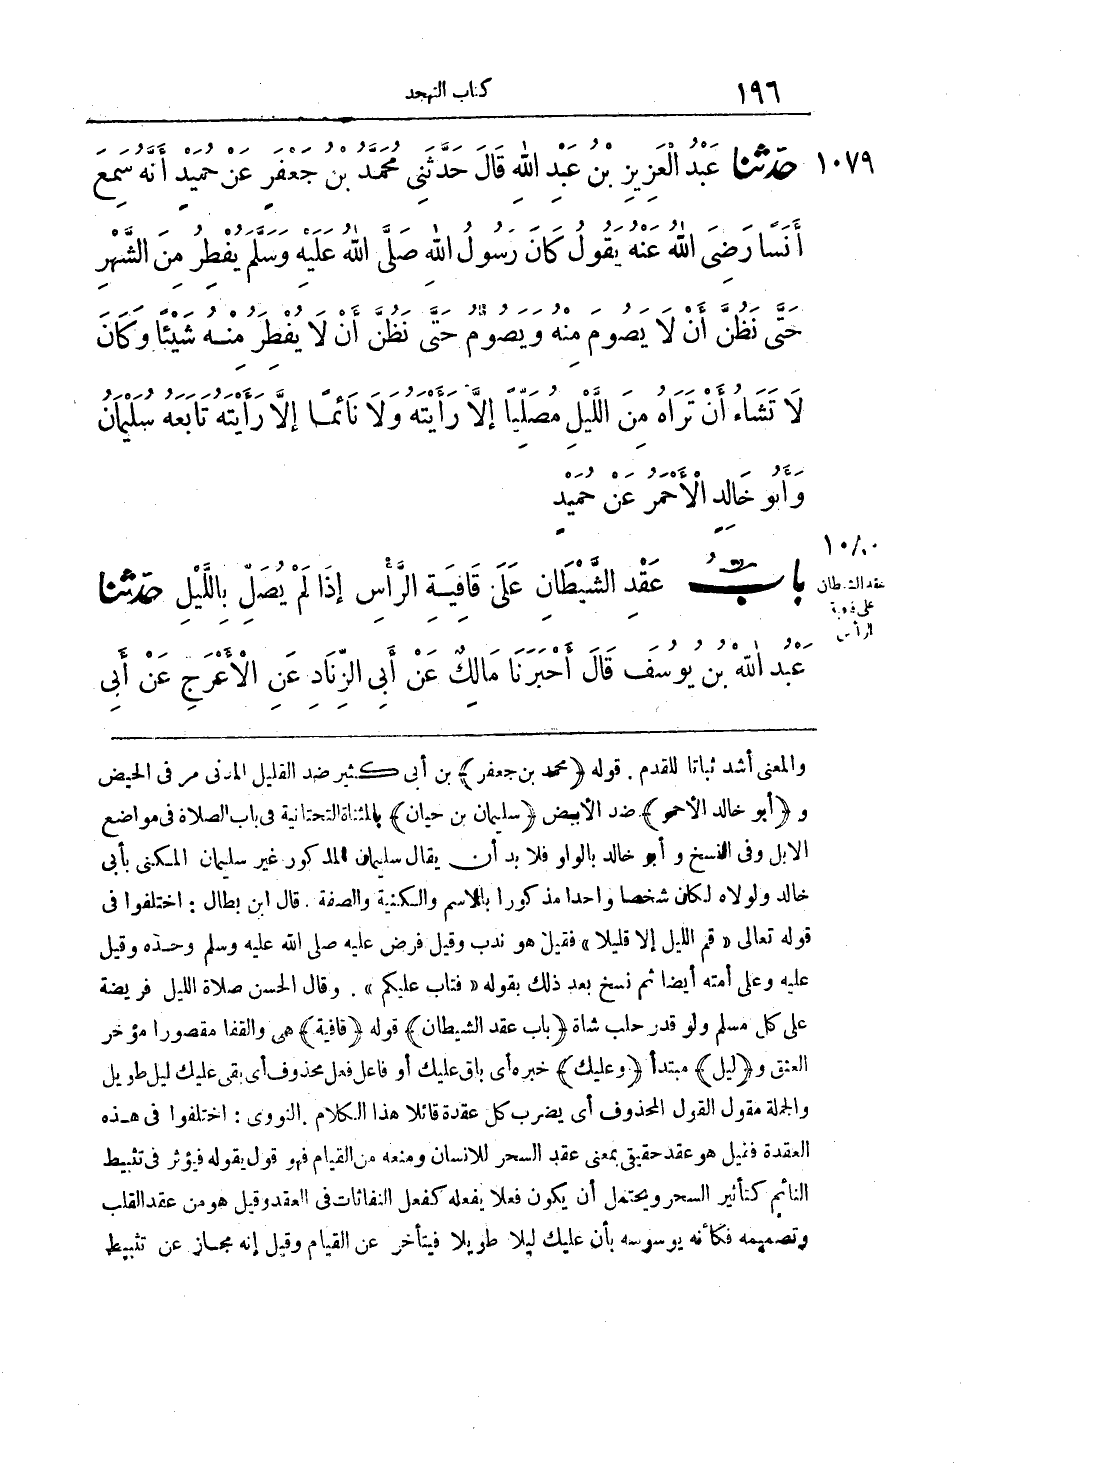 ١٩٦
كتاب التهجد
١٠٧٩ حَدَّثَنَا عَبْدُ الْعَزِيزِ بْنُ عَبْدِ اللهِ قَالَ حَدَّثَنِى مُحَمَّدُ بْنُ جَعْفَرٍ عَنْ حُمَيْدٍ أَنَّهُ سَمِعَ
أَنَسًا رَضِىَ اللهُ عَنْهُ يَقُولُ كَانَ رَسُولُ اللهِ صَلَّى اللهُ عَلَيْهِ وَسَلَّمَ يُفْطِرُ مِنَ الشَّهْرِ
حَتَّى نَظُنَّ أَنْ لَا يَصُومَ مِنْهُ وَيَصُومُ حَتَّى نَظُنَّ أَنْ لَا يُفْطِرَ مِنْهُ شَيْئًا وَكَانَ
لَا تَشَاءُ أَنْ تَرَاهُ مِنَ اللَّيْلِ مُصَلِّيًا إِلَّا رَأَيْتَهُ وَلَا نَائِمًا إِلَّا رَأَيْتَهُ تَابَعَهُ سُلَيْمَانُ
وَأَبُو خَالِدٍ الْأَحْمَرُ عَنْ حُمَيْدٍ
١٠٨٠
عقد الشيطان
على قافية
الرأس
بَابُ عَقْدِ الشَّيْطَانِ عَلَى قَافِيَةِ الرَّأْسِ إِذَا لَمْ يُصَلِّ بِاللَّيْلِ حَدَّثَنَا
عَبْدُ اللهِ بْنُ يُوسُفَ قَالَ أَخْبَرَنَا مَالِكٌ عَنْ أَبِى الزِّنَادِ عَنِ الْأَعْرَجِ عَنْ أَبِى
والمعنى أشد ثباتا للقدم . قوله ﴿محمد بن جعفر﴾ بن أبى كثير ضد القليل المدنى مر فى الحيض
و ﴿أبو خالد الأحمر﴾ ضد الأبيض ﴿سليمان بن حيان﴾ بالمثناة التحتانية فى باب الصلاة فى مواضع
الابل وفى النسخ و أبو خالد بالواو فلا بد أن يقال سليمان المذكور غير سليمان المكنى بأبى
خالد ولولاه لكان شخصا واحدا مذكورا بالاسم والكنية والصفة . قال ابن بطال : اختلفوا فى
قوله تعالى « قم الليل إلا قليلا » فقيل هو ندب وقيل فرض عليه صلى الله عليه وسلم وحده وقيل
عليه وعلى أمته أيضا ثم نسخ بعد ذلك بقوله « فتاب عليكم » . وقال الحسن صلاة الليل فريضة
على كل مسلم ولو قدر حلب شاة ﴿باب عقد الشيطان﴾ قوله ﴿قافية﴾ هى والقفا مقصورا مؤخر
العنق و ﴿ليل﴾ مبتدأ ﴿وعليك﴾ خبره أى باق عليك أو فاعل فعل محذوف أى بقى عليك ليل طويل
والجملة مقول القول المحذوف أى يضرب كل عقدة قائلا هذا الكلام . النووى : اختلفوا فى هذه
العقدة فقيل هو عقد حقيقى بمعنى عقد السحر للانسان ومنعه من القيام فهو قول يقوله فيؤثر فى تثبيط
النائم كتأثير السحر ويحتمل أن يكون فعلا يفعله كفعل النفاثات فى العقد وقيل هو من عقد القلب
وتصميمه فكأنه يوسوسه بأن عليك ليلا طويلا فيتأخر عن القيام وقيل إنه مجاز عن تثبيط